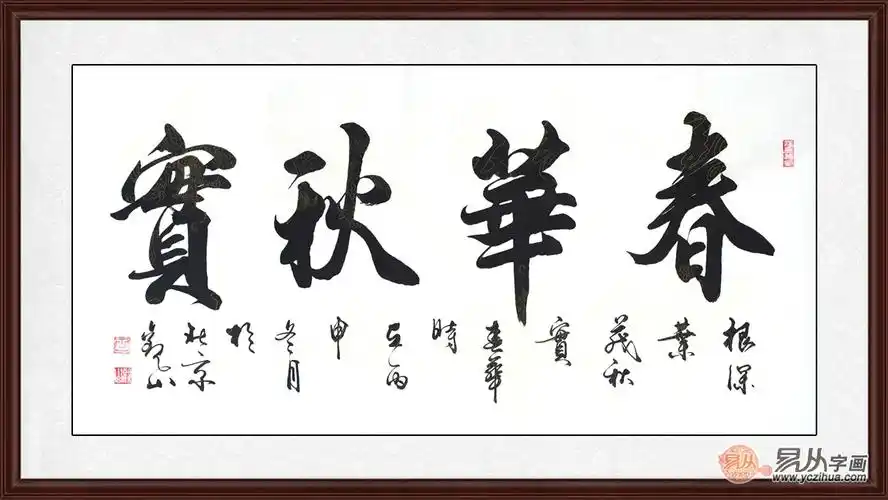 春華秋實
根深
葉
茂秋
實
春華
時
在丙
申
冬月
於
北京
山
易从
易从字画
www.yczihua.com